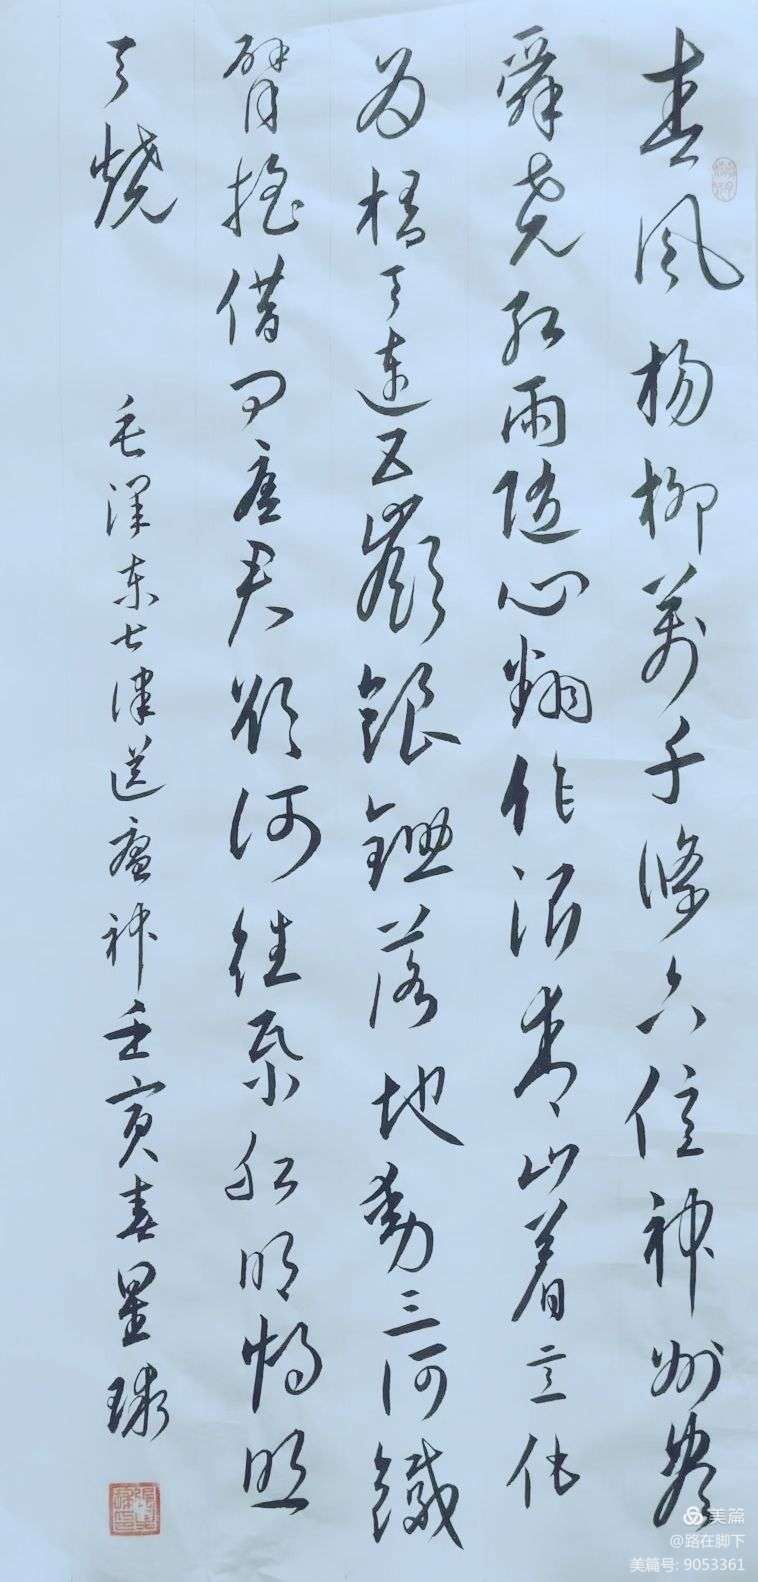 春风杨柳萬千條六億神州盡
舜尧红雨随心翻作浪青山着意化
为桥天连五嶺銀鋤落地動三河鐵
臂摇借问瘟君欲何往纸船明烛照
天烧
毛泽东七律送瘟神壬寅春星球
美篇
@路在脚下
美篇号: 9053361